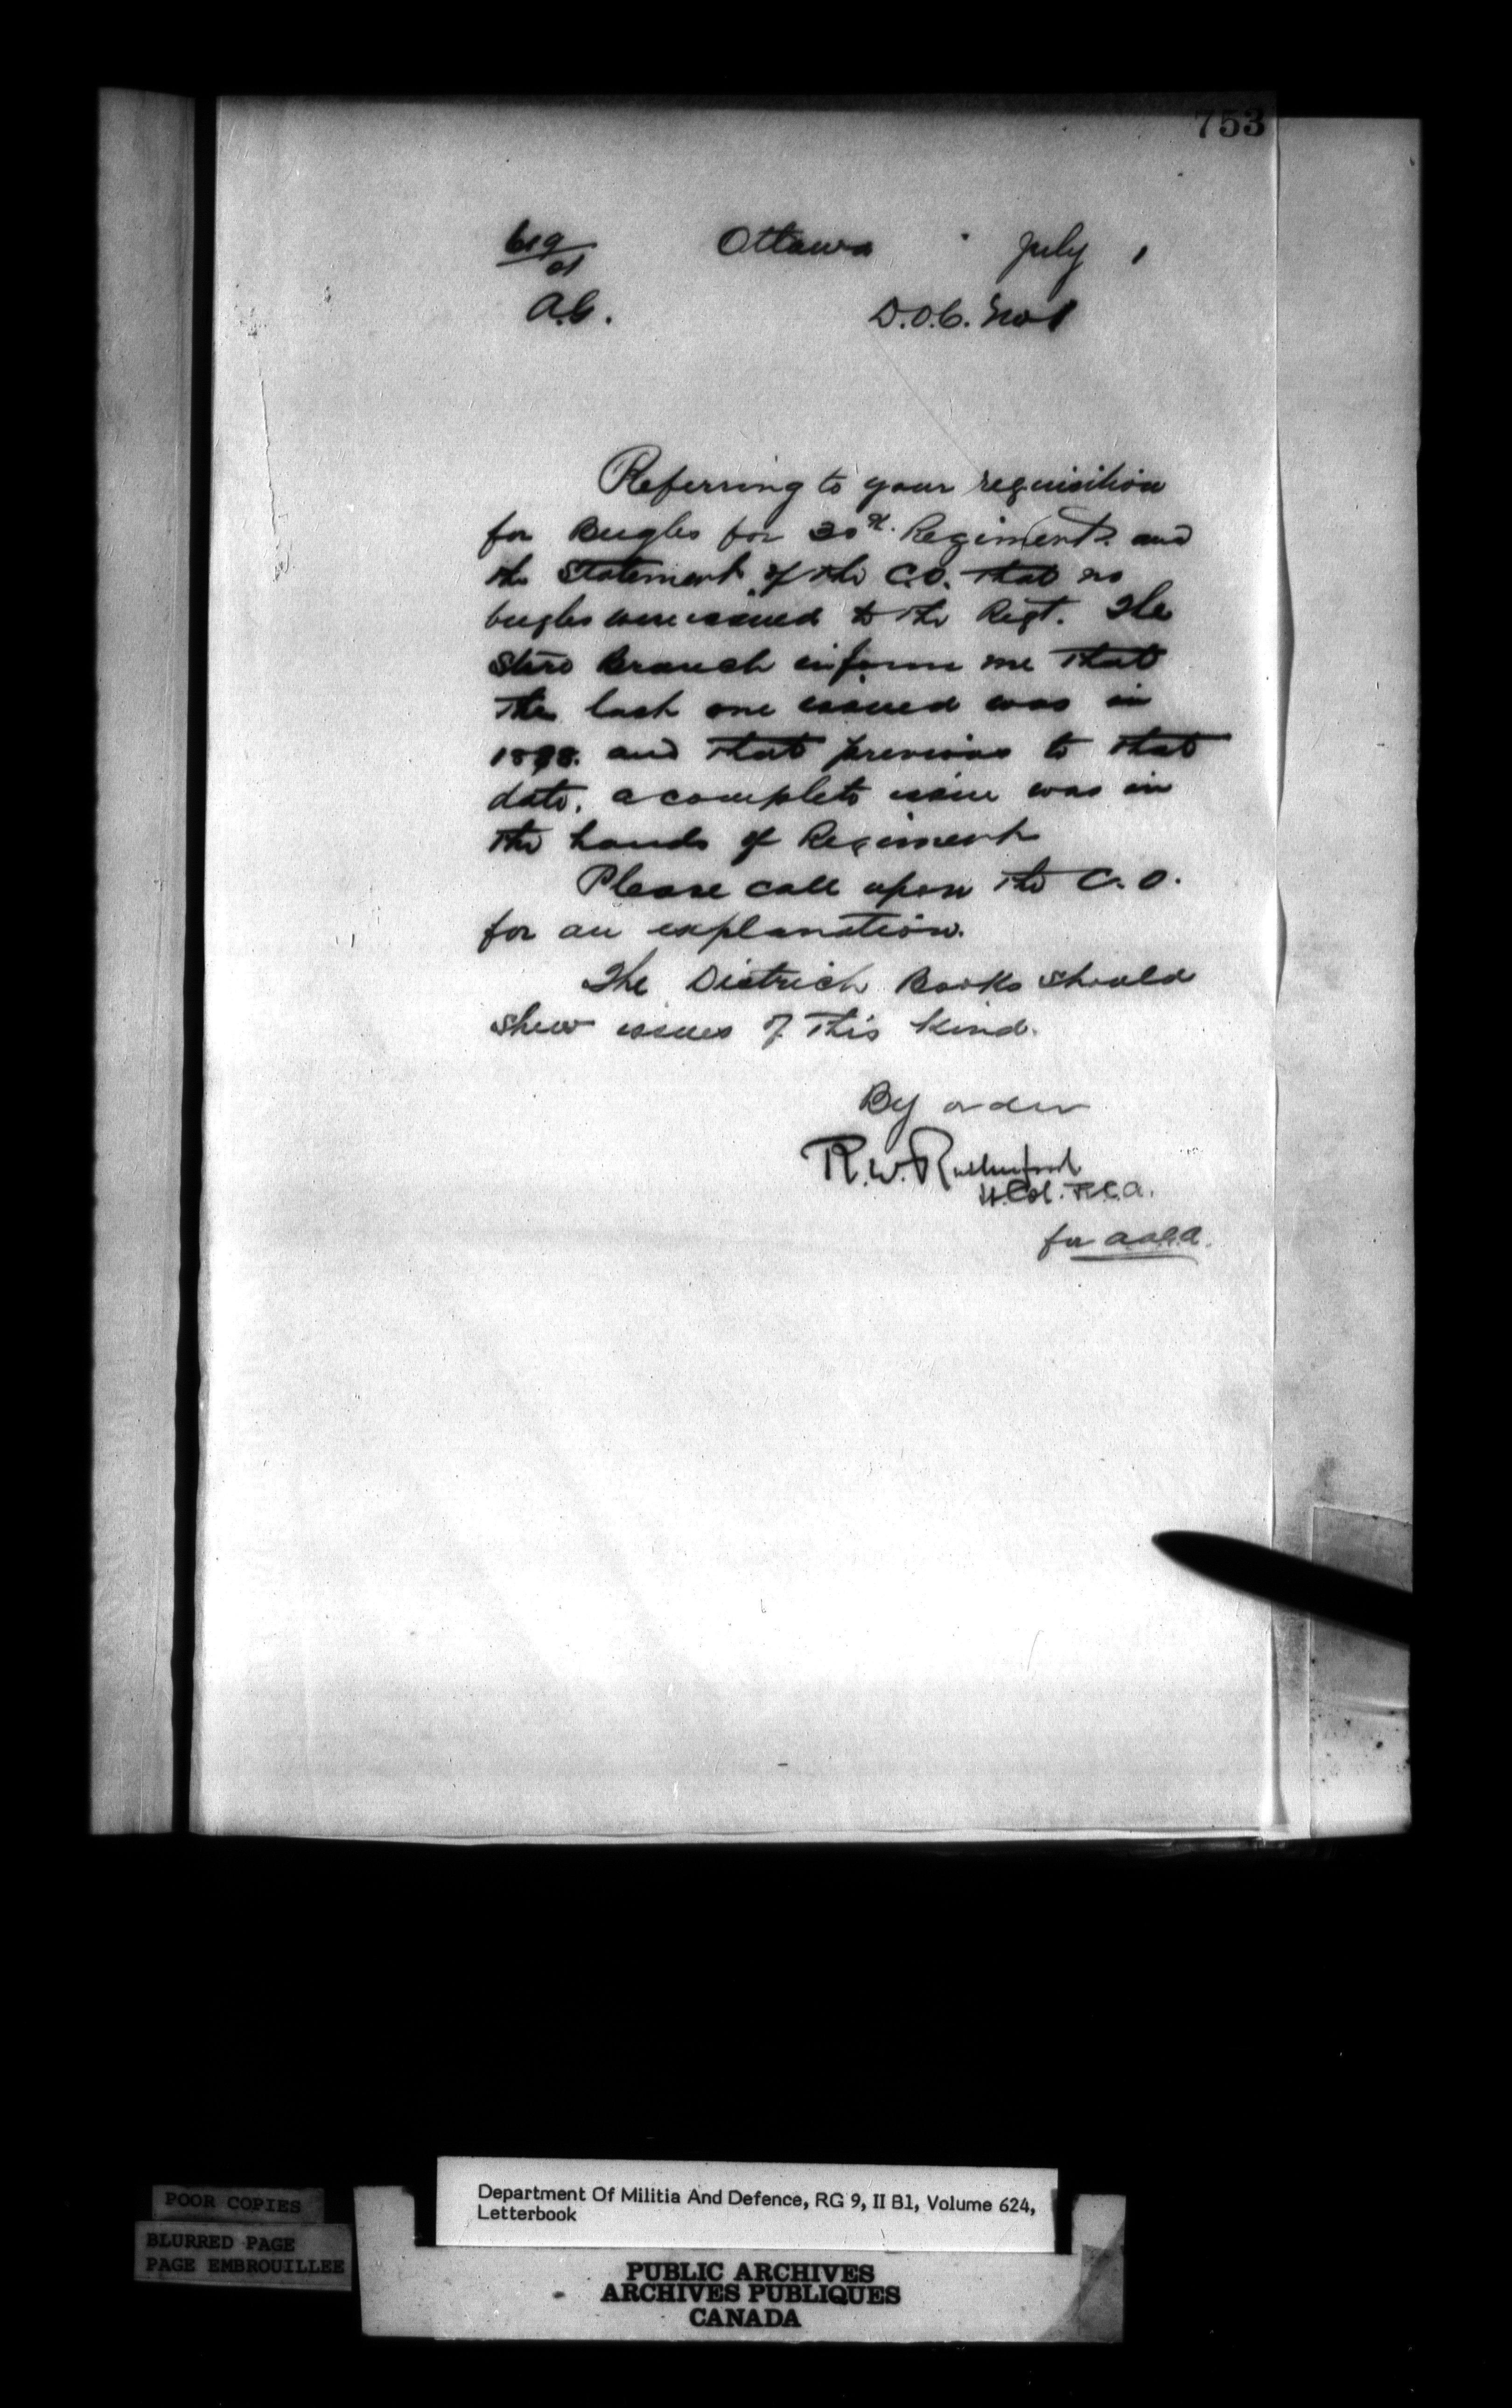 753
Ottawa July 1
A.C. D.O.C. No 1
Referring to your requisition
for Bugles for 30th. Regiment. and
the statement of the C.O. that no
bugles were issued to the Regt. The
Store Branch inform me that
the last one issued was in
1898. and that previous to that
date, a complete issue was in
the hands of Regiment
Please call upon the C.O.
for an explanation.
The District Books should
shew issues of this kind.
By order
R.W. Rutherford
Lt. Col. R.C.A.
for
POOR COPIES
BLURRED PAGE
PAGE EMBROUILLEE
Department Of Militia And Defence, RG 9, II B1, Volume 624,
Letterbook
PUBLIC ARCHIVES
ARCHIVES PUBLIQUES
CANADA